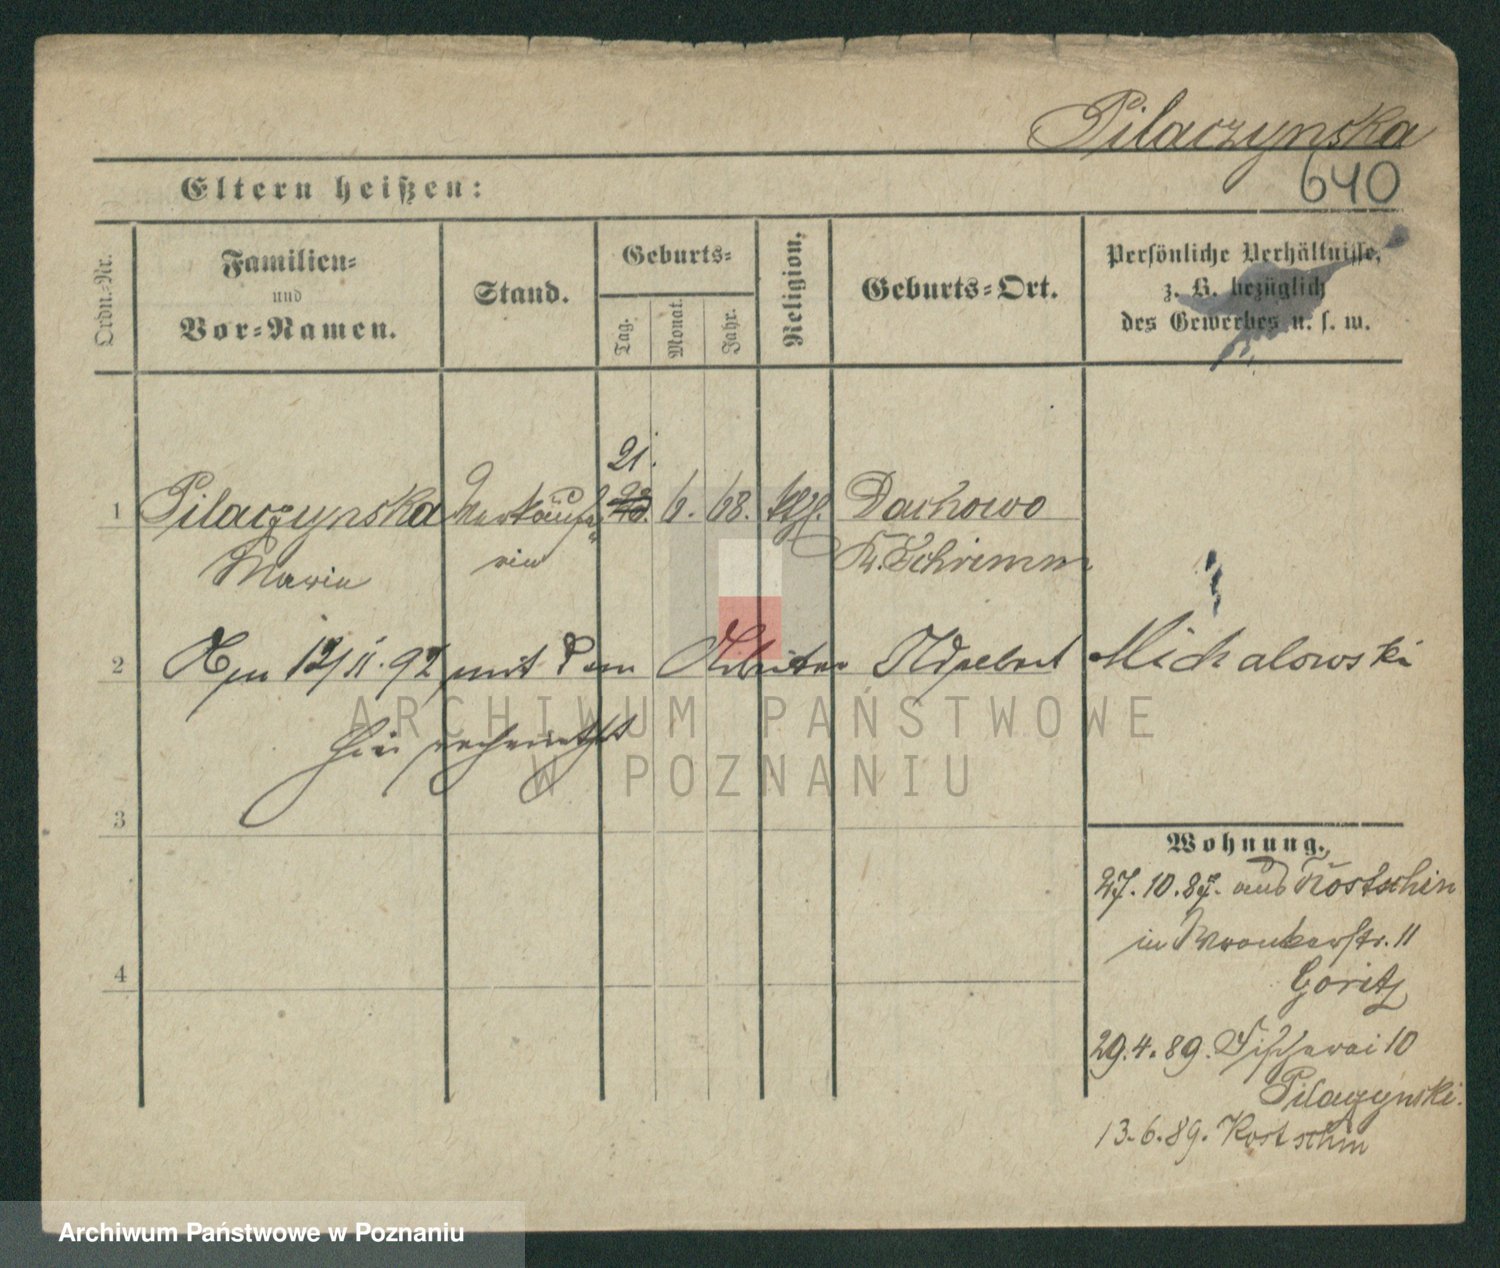 Pilaczynska
640
Eltern heißen:
Ordn.-Nr.
Familien-
und
Vor-Namen.
Stand.
Geburts-
Tag.
Monat.
Jahr.
Religion.
Geburts-Ort.
Persönliche Verhältnisse,
z. B. bezüglich
des Gewerbes u. s. w.
21.
1 Pilaczynska Verkäufe- 6. 68. kth. Dachowo
Marie rin Kr. Schrimm
2 Am 12/11.92 mit dem Arbeiter Adalbert Michalowski
hier
3
4
Wohnung.
27.10.87. aus Kostschin
in Wronkerstr. 11
Goritz
29.4.89. Fischerei 10
Pilaczynski.
13.6.89. Kostschin
ARCHIWUM PAŃSTWOWE
W POZNANIU
Archiwum Państwowe w Poznaniu